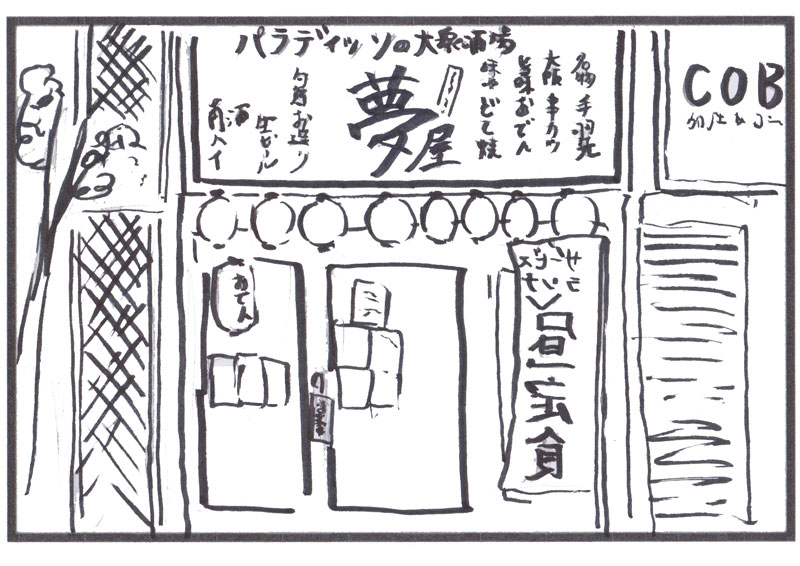 パラディッソの大衆酒場
名物 手羽先
大阪 串カツ
旨味おでん
味噌どて焼
夢屋
旬前お造り
生ビール
酒
角ハイ
COB
おでん
昼定食